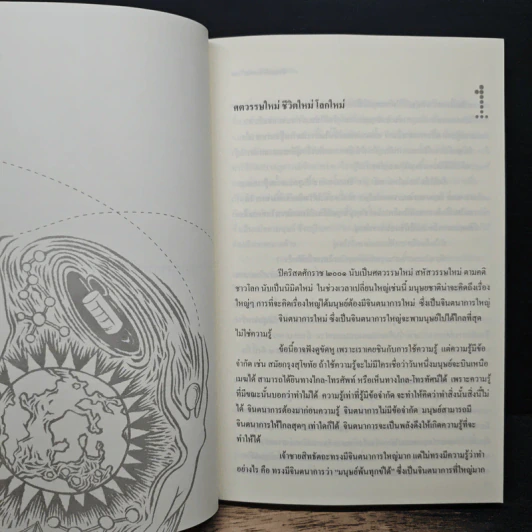 1
ศตวรรษใหม่ ชีวิตใหม่ โลกใหม่
ปีคริสตศักราช ๒๐๐๑ นับเป็นศตวรรษใหม่ สหัสวรรษใหม่ ตามคติ
ชาวโลก นับเป็นนิมิตใหม่ ในช่วงเวลาเปลี่ยนใหญ่เช่นนี้ มนุษยชาติน่าจะคิดถึงเรื่อง
ใหญ่ๆ การที่จะคิดเรื่องใหญ่ได้มนุษย์ต้องมีจินตนาการใหม่ ซึ่งเป็นจินตนาการใหญ่
จินตนาการใหม่ ซึ่งเป็นจินตนาการใหญ่จะพามนุษย์ไปได้ไกลที่สุด
ไม่ใช่ความรู้
ข้อนี้อาจฟังดูขัดหู เพราะเราเคยชินกับการใช้ความรู้ แต่ความรู้มีข้อ
จำกัด เช่น สมัยกรุงสุโขทัย ถ้าใช้ความรู้จะไม่มีใครเชื่อว่าวันหนึ่งมนุษย์จะบินเหนือ
เมฆได้ สามารถได้ยินทางไกล-โทรศัพท์ หรือเห็นทางไกล-โทรทัศน์ได้ เพราะความรู้
ที่มีขณะนั้นบอกว่าทำไม่ได้ ความรู้เก่าที่รู้มีข้อจำกัด จะทำให้คิดว่าทำสิ่งนั้นสิ่งนี้ไม่
ได้ จินตนาการต้องมาก่อนความรู้ จินตนาการไม่มีข้อจำกัด มนุษย์สามารถมี
จินตนาการให้ไกลสุดๆ เท่าใดก็ได้ จินตนาการจะเป็นพลังดึงให้เกิดความรู้ที่จะ
ทำให้ได้
เจ้าชายสิทธัตถะทรงมีจินตนาการใหญ่มาก แต่ไม่ทรงมีความรู้ว่าทำ
อย่างไร คือ ทรงมีจินตนาการว่า "มนุษย์พ้นทุกข์ได้" ซึ่งเป็นจินตนาการที่ใหญ่มาก